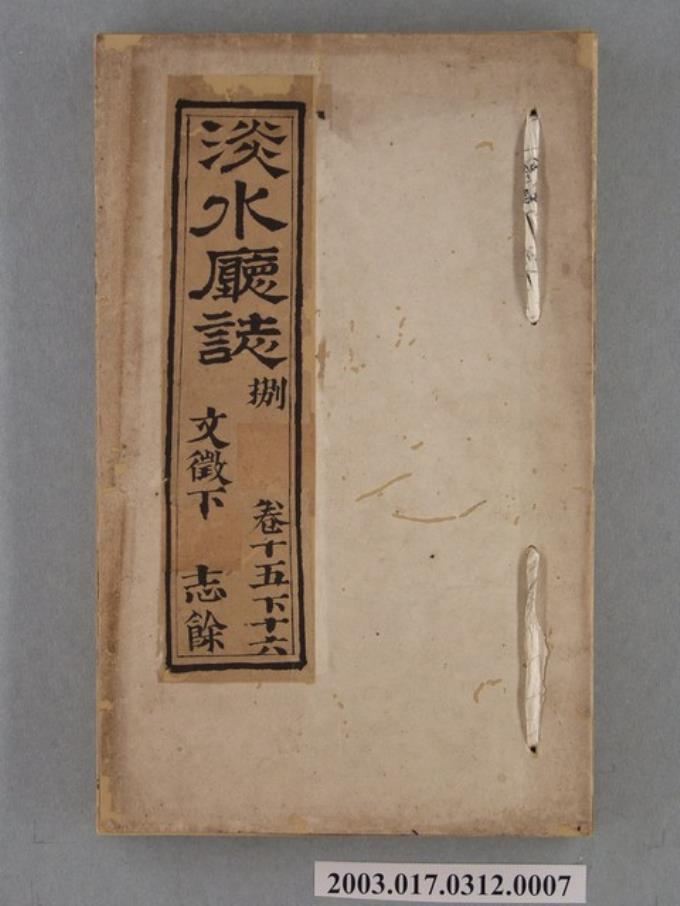 淡水廳誌
捌
卷十五下十六
文徵下 志餘
2003.017.0312.0007